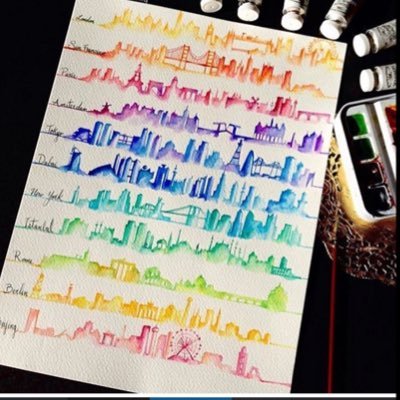 London
San Francisco
Paris
Amsterdam
Tokyo
Dubai
New York
Istanbul
Rome
Berlin